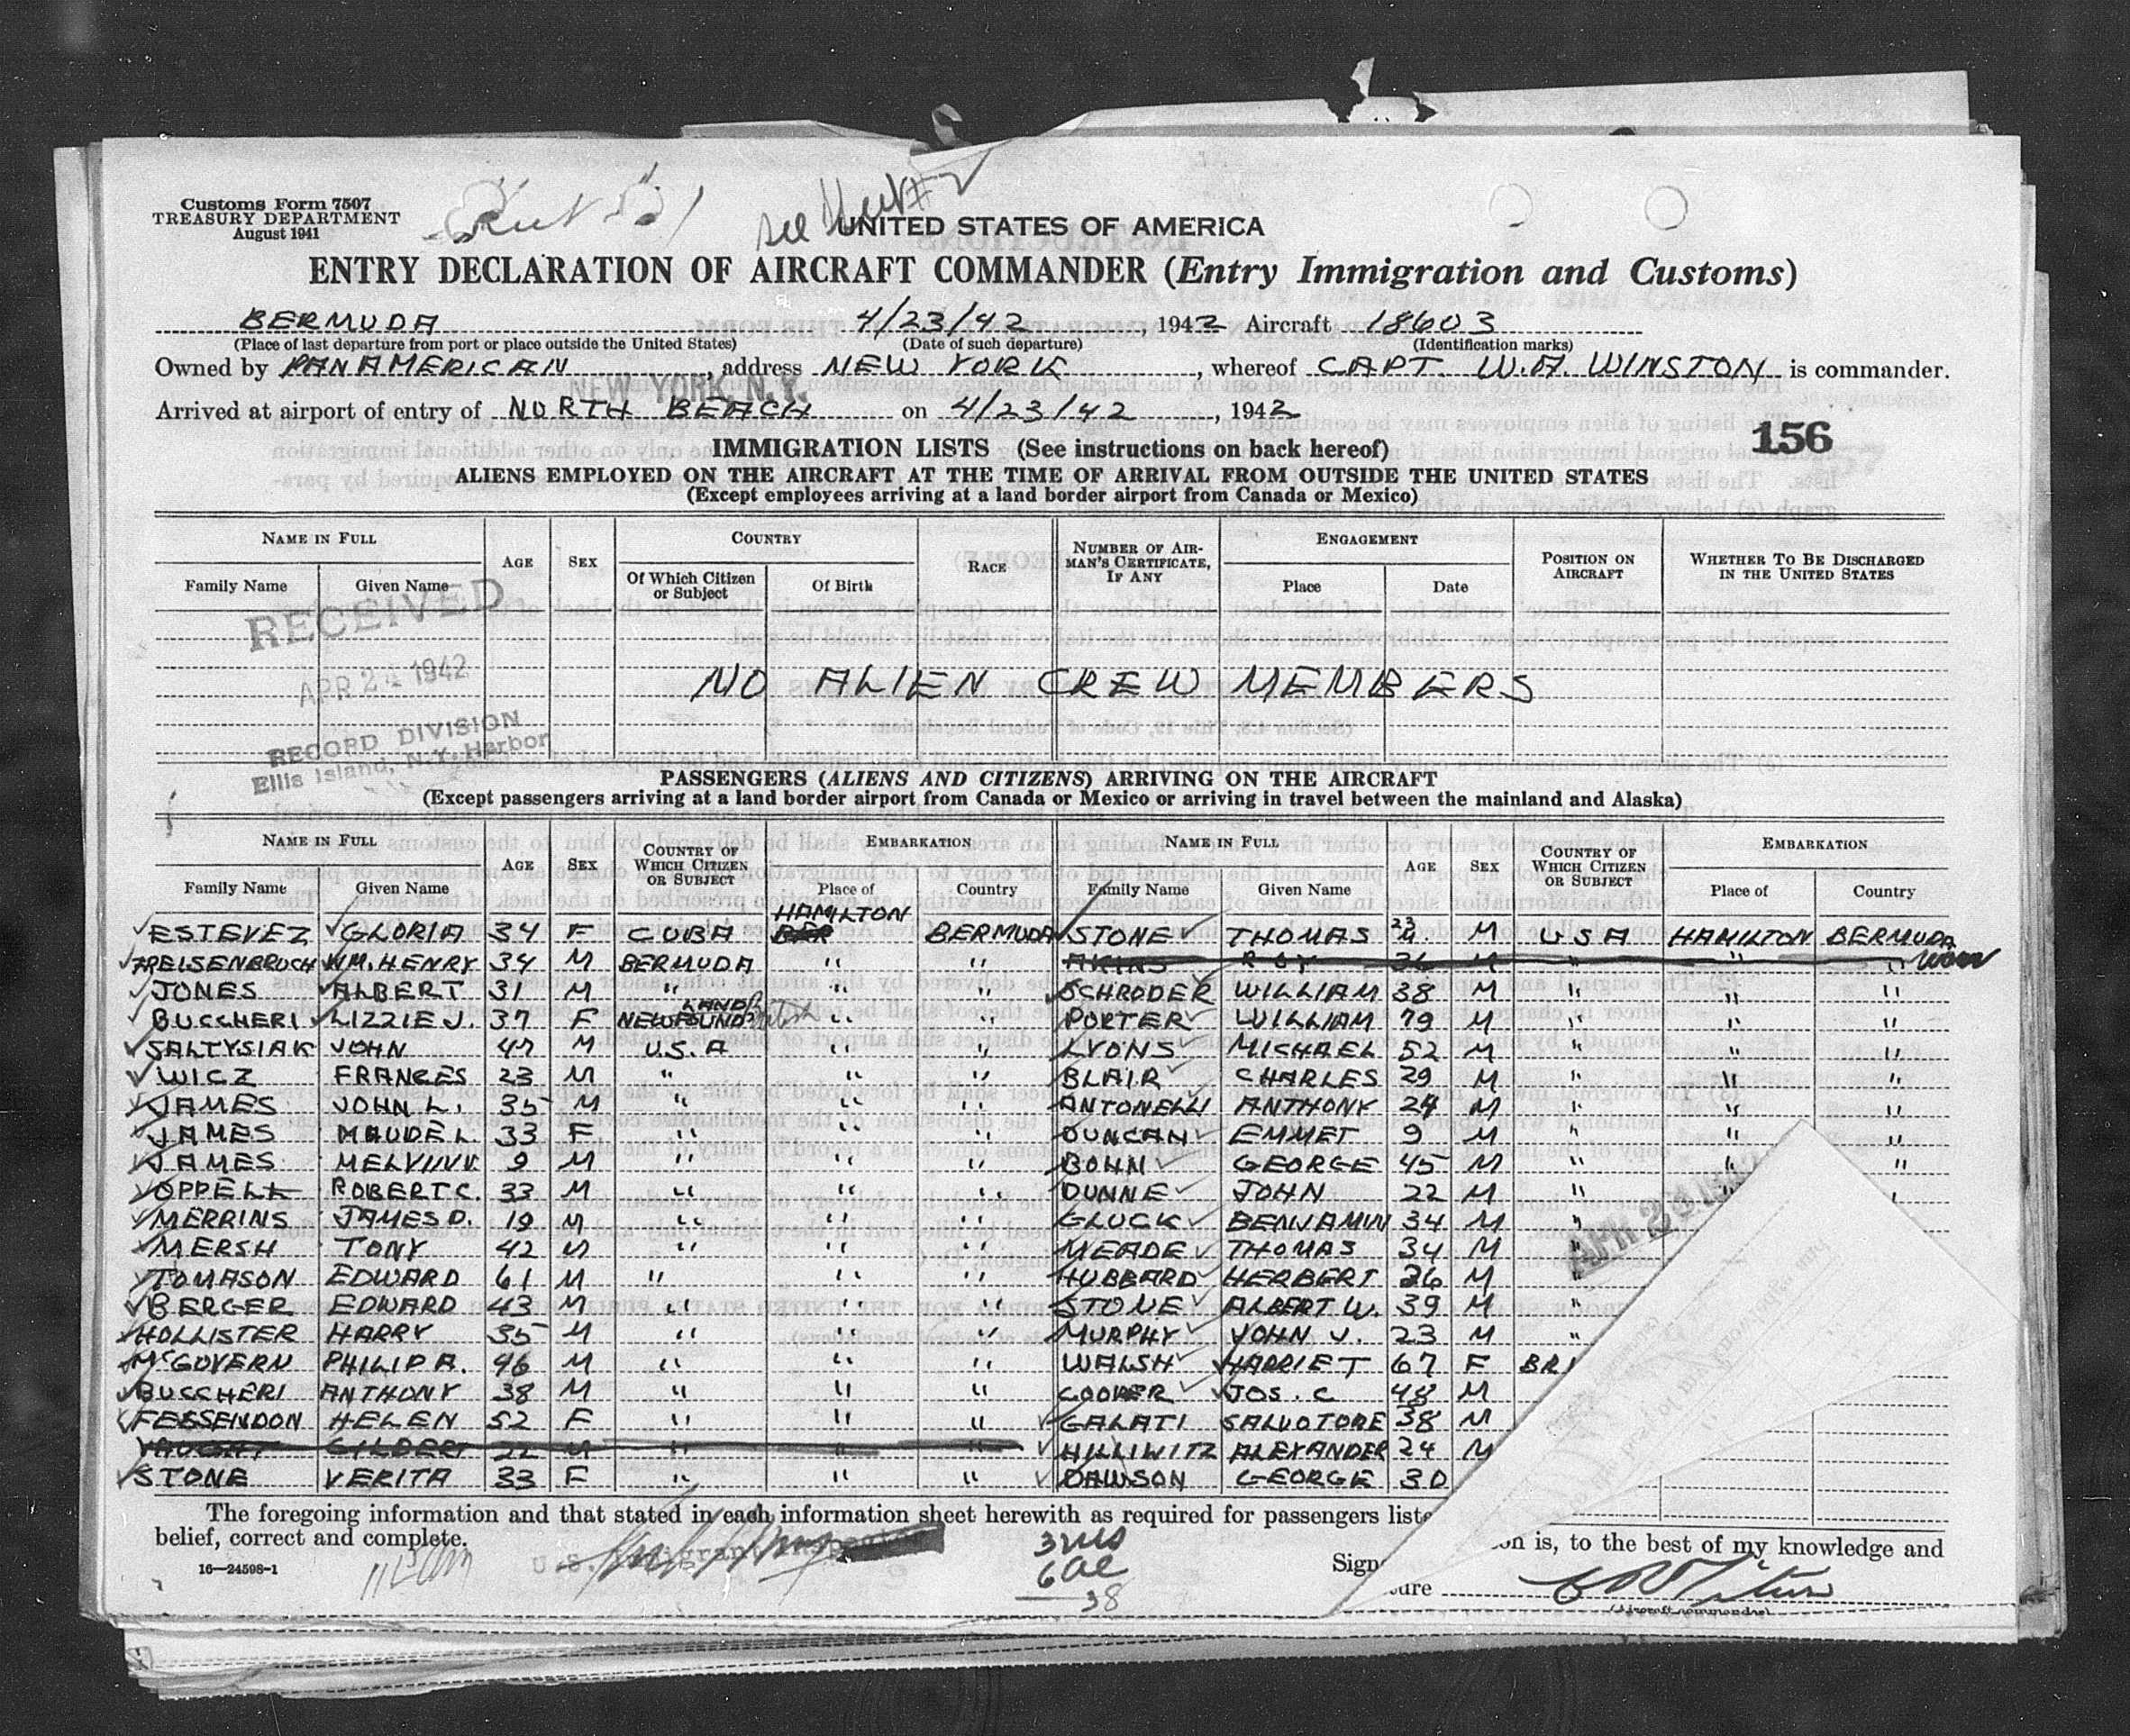 Customs Form 7507
TREASURY DEPARTMENT
August 1941
see
UNITED STATES OF AMERICA
ENTRY DECLARATION OF AIRCRAFT COMMANDER (Entry Immigration and Customs)
BERMUDA 4/23/42, 1942 Aircraft 18603
(Place of last departure from port or place outside the United States) (Date of such departure) (Identification marks)
Owned by PAN AMERICAN, address NEW YORK, whereof CAPT. W.A. WINSTON is commander.
NEW YORK, N.Y.
Arrived at airport of entry of NORTH BEACH on 4/23/42, 1942
156
IMMIGRATION LISTS (See instructions on back hereof)
ALIENS EMPLOYED ON THE AIRCRAFT AT THE TIME OF ARRIVAL FROM OUTSIDE THE UNITED STATES
(Except employees arriving at a land border airport from Canada or Mexico)
NAME IN FULL AGE SEX COUNTRY RACE NUMBER OF AIRMAN'S CERTIFICATE, IF ANY ENGAGEMENT POSITION ON AIRCRAFT WHETHER TO BE DISCHARGED IN THE UNITED STATES
Family Name Given Name Of Which Citizen or Subject Of Birth Place Date
RECEIVED
APR 24 1942
RECORD DIVISION
Ellis Island, N.Y. Harbor
NO ALIEN CREW MEMBERS
PASSENGERS (ALIENS AND CITIZENS) ARRIVING ON THE AIRCRAFT
(Except passengers arriving at a land border airport from Canada or Mexico or arriving in travel between the mainland and Alaska)
NAME IN FULL AGE SEX COUNTRY OF WHICH CITIZEN OR SUBJECT EMBARKATION NAME IN FULL AGE SEX COUNTRY OF WHICH CITIZEN OR SUBJECT EMBARKATION
Family Name Given Name Place of Country Family Name Given Name Place of Country
HAMILTON
ESTEVEZ GLORIA 34 F CUBA BER BERMUDA STONE THOMAS 23 M USA HAMILTON BERMUDA
FREISENBRUCH WM. HENRY 34 M BERMUDA " " AKINS ROY 36 M " " "
JONES ALBERT 31 M " " " SCHRODER WILLIAM 38 M " " "
BUCCHERI LIZZIE J. 37 F NEWFOUNDLAND " " PORTER WILLIAM 79 M " " "
SALTYSIAK JOHN 47 M U.S.A " " LYONS MICHAEL 52 M " " "
WICZ FRANCES 23 M " " " BLAIR CHARLES 29 M " " "
JAMES JOHN L. 35 M " " " ANTONELLI ANTHONY 24 M " " "
JAMES MAUDE L. 33 F " " " DUNCAN EMMET 9 M " " "
JAMES MELVIN V. 9 M " " " BOHN GEORGE 45 M " " "
OPPELL ROBERT C. 33 M " " " DUNNE JOHN 22 M "
MERRINS JAMES D. 19 M " " " GLUCK BENJAMIN 34 M "
MERSH TONY 42 M " " " MEADE THOMAS 34 M "
TOMASON EDWARD 61 M " " " HUBBARD HERBERT 26 M "
BERGER EDWARD 43 M " " " STONE ALBERT W. 39 M "
HOLLISTER HARRY 35 M " " " MURPHY JOHN J. 23 M "
McGOVERN PHILIP A. 46 M " " " WALSH HARRIET 67 F BRI
BUCCHERI ANTHONY 38 M " " " COOPER JOS. C 48 M
FESSENDON HELEN 52 F " " " GALATI SALVOTORE 38 M
GILBERT 22 M " " " HILLIWITZ ALEXANDER 24 M
STONE VERITA 33 F " " " DAWSON GEORGE 30
APR 23 1942
The foregoing information and that stated in each information sheet herewith as required for passengers liste
on is, to the best of my knowledge and
belief, correct and complete.
16—24598-1
U.S. Immigrant Inspector
38
Signature
(Aircraft commander)